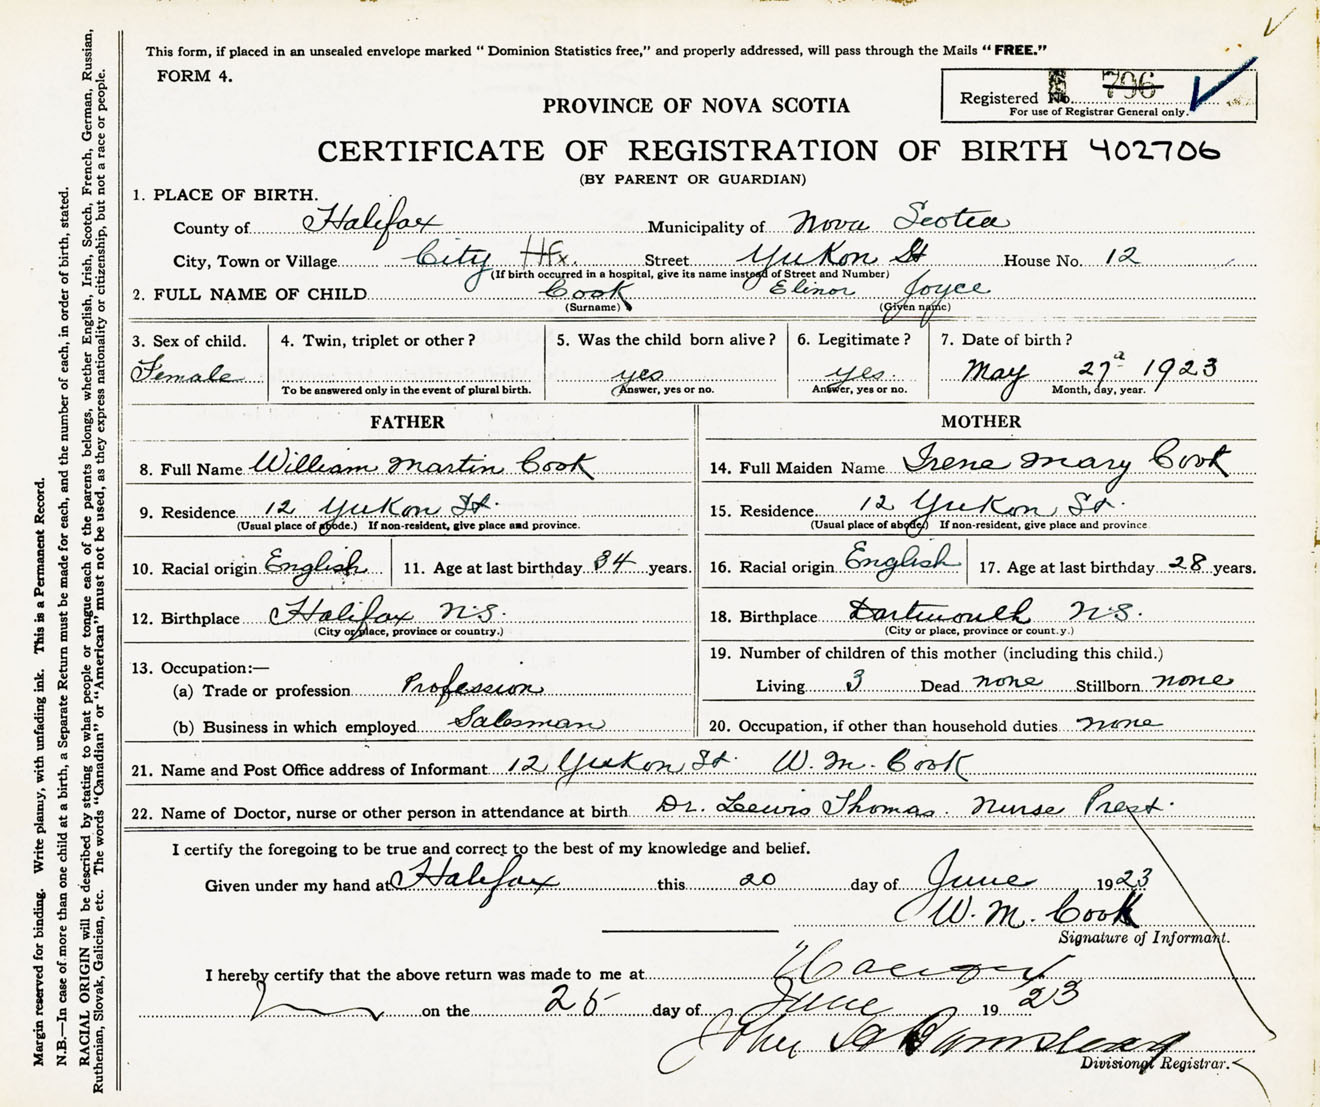 This form, if placed in an unsealed envelope marked “ Dominion Statistics free,” and properly addressed, will pass through the Mails “ FREE.”
FORM 4.
Registered No. 796
For use of Registrar General only.
PROVINCE OF NOVA SCOTIA
CERTIFICATE OF REGISTRATION OF BIRTH 402706
(BY PARENT OR GUARDIAN)
1. PLACE OF BIRTH.
County of Halifax Municipality of Nova Scotia
City, Town or Village City Hfx. Street Yukon St House No. 12
(If birth occurred in a hospital, give its name instead of Street and Number)
2. FULL NAME OF CHILD Cook Elinor Joyce
(Surname) (Given name)
3. Sex of child. 4. Twin, triplet or other? 5. Was the child born alive? 6. Legitimate? 7. Date of birth?
Female yes yes. May 27 1923
To be answered only in the event of plural birth. (Answer, yes or no. Answer, yes or no. Month, day, year.
FATHER MOTHER
8. Full Name William Martin Cook 14. Full Maiden Name Irene Mary Cook
9. Residence 12 Yukon St. 15. Residence 12 Yukon St.
(Usual place of abode.) If non-resident, give place and province. (Usual place of abode) If non-resident, give place and province
10. Racial origin English 11. Age at last birthday 34 years. 16. Racial origin English 17. Age at last birthday 28 years.
12. Birthplace Halifax N.S. 18. Birthplace Dartmouth N.S.
(City or place, province or country.) (City or place, province or count.y.)
13. Occupation:— 19. Number of children of this mother (including this child.)
(a) Trade or profession Profession Living 3 Dead none Stillborn none
(b) Business in which employed Salesman 20. Occupation, if other than household duties none
21. Name and Post Office address of Informant 12 Yukon St. W. M. Cook
22. Name of Doctor, nurse or other person in attendance at birth Dr. Lewis Thomas. Nurse Prest.
I certify the foregoing to be true and correct to the best of my knowledge and belief.
Given under my hand at Halifax this 20 day of June 1923
W. M. Cook
Signature of Informant.
I hereby certify that the above return was made to me at
on the 25 day of June 1923
John
Divisional Registrar.
Margin reserved for binding. Write plainly, with unfading ink. This is a Permanent Record.
N.B.—In case of more than one child at a birth, a Separate Return must be made for each, and the number of each, in order of birth, stated.
RACIAL ORIGIN will be described by stating to what people or tongue each of the parents belongs, whether English, Irish, Scotch, French, German, Russian,
Ruthenian, Slovak, Galician, etc. The words “Canadian” or “American” must not be used, as they express nationality or citizenship, but not a race or people.